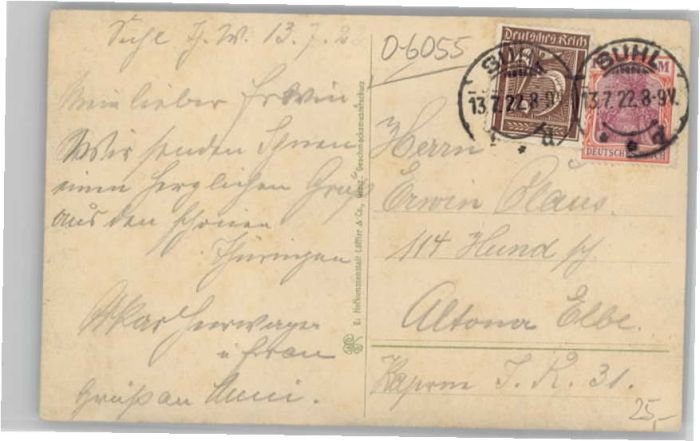 Suhl Th. W. 13.7.2
Mein lieber Erwin
Wir senden Ihnen
einen herzlichen Gruß
aus den schönen
Thüringen
Oskar
u Frau
Gruß an Anni.
E. Hofkunstanstalt Löffler & Co., Greiz. Geschmacksmusterschutz
0-6055
Deutsches Reich
75
SUHL
13.7.22.8-9V.
SUHL
13.7.22.8-9V.
M
DEUTSCHES REICH
Herrn
Erwin Claus.
114 Hund
Altona Elbe.
Kaserne I. R. 31.
25,-